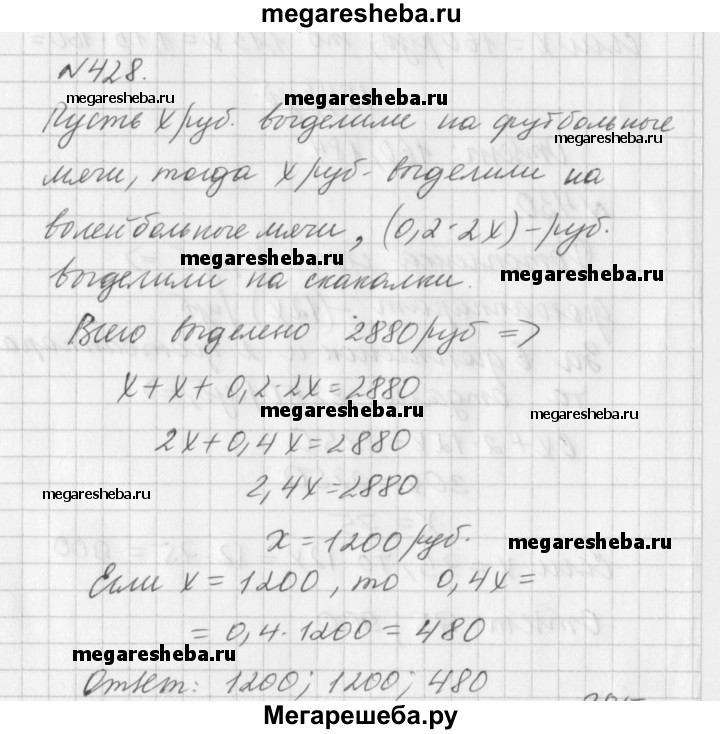 megaresheba.ru
№428.
megaresheba.ru megaresheba.ru
Пусть x руб. выделили на футбольные
megaresheba.ru
мячи, тогда x руб. выделили на
волейбольные мячи, (0,2·2x) – руб.
megaresheba.ru megaresheba.ru
выделили на скакалки.
Всего выделено 2880 руб =>
x + x + 0,2·2x = 2880
megaresheba.ru megaresheba.ru
2x + 0,4x = 2880
2,4x = 2880
megaresheba.ru
x = 1200 руб.
megaresheba.ru
Если x = 1200, то 0,4x =
= 0,4·1200 = 480
megaresheba.ru
Ответ: 1200; 1200; 480
Мегарешеба.ру